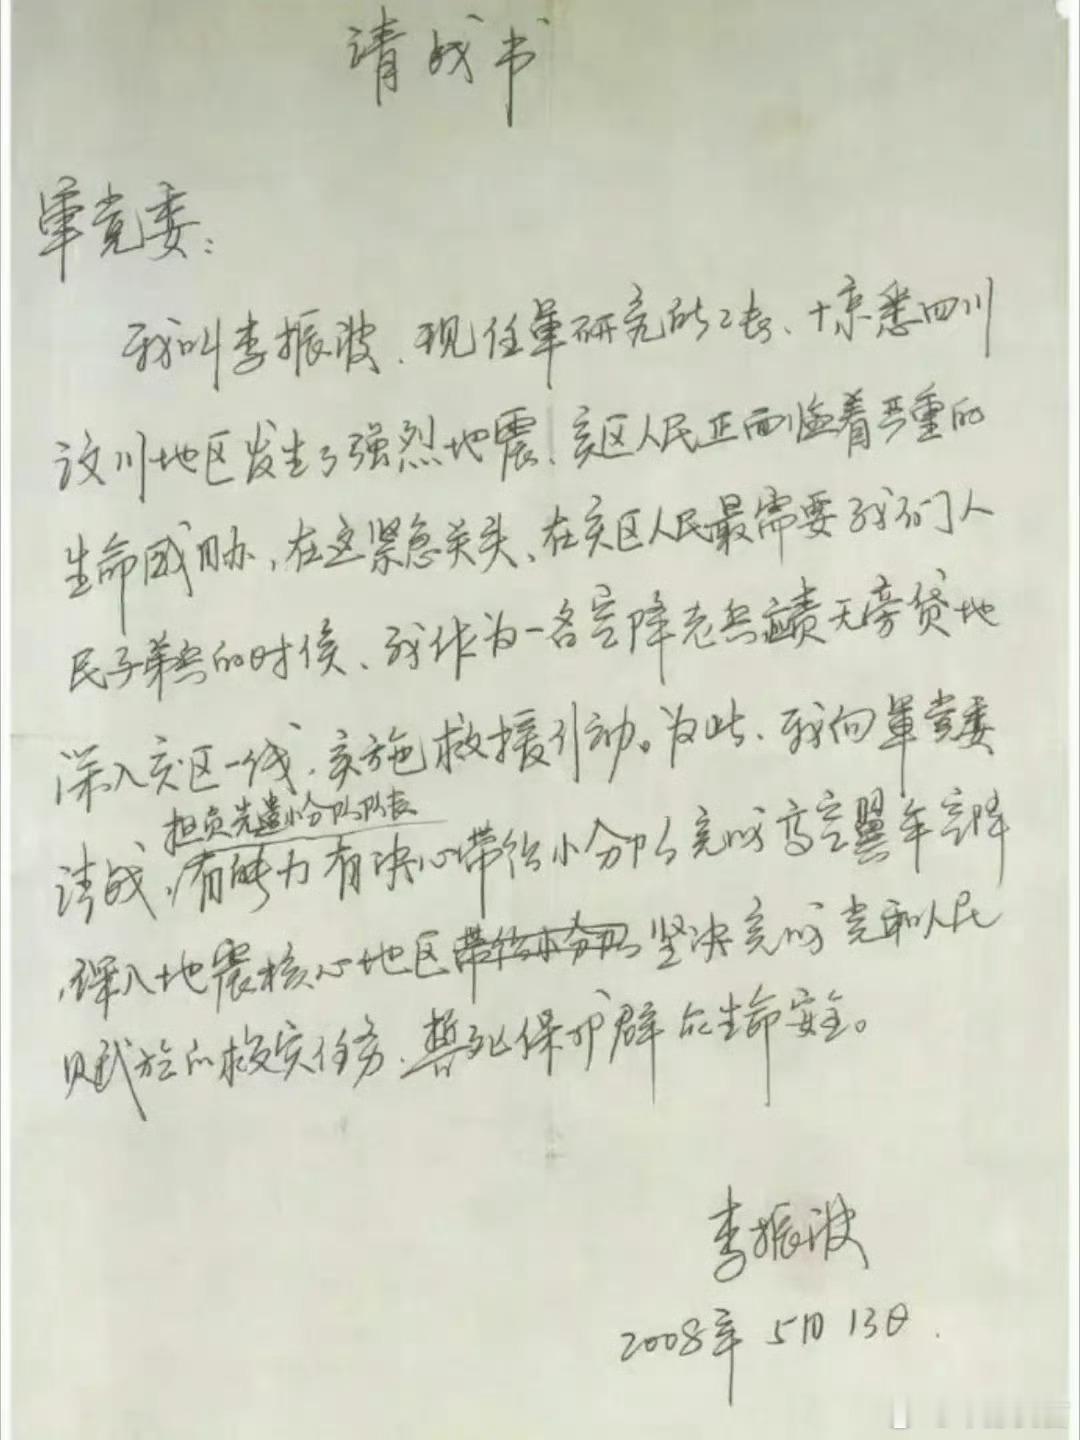 请战书
军党委：
我叫李振波、现任军研究所所长、惊悉四川
汶川地区发生了强烈地震、灾区人民正面临着严重的
生命威胁，在这紧急关头、在灾区人民最需要我们人
民子弟兵的时候、我作为一名空降老兵责无旁贷地
深入灾区一线，实施救援行动。为此、我向军党委
担负先遣小分队队长
请战，有能力有决心带领小分队完成高空翼伞空降
，深入地震核心地区带领小分队坚决完成党和人民
赋于的救灾任务、誓死保护群众生命安全。
李振波
2008年5月13日.